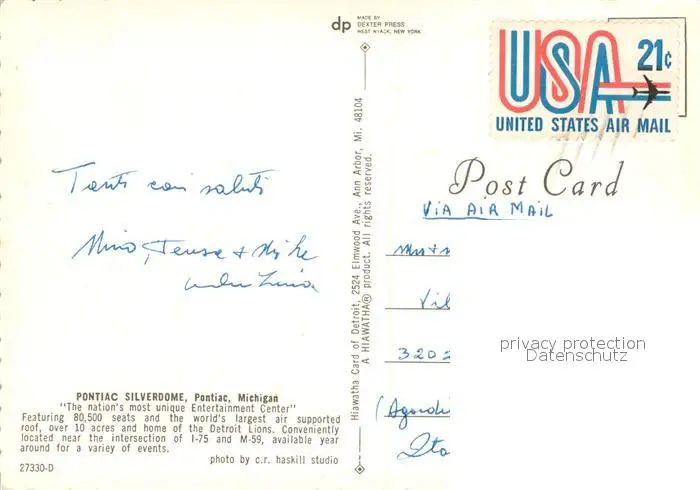 dp
MADE BY
DEXTER PRESS
WEST NYACK, NEW YORK
USA 21¢
UNITED STATES AIR MAIL
Post Card
VIA AIR MAIL
Tanti cari saluti
Mino, & Mike
320
Hiawatha Card of Detroit, 2524 Elmwood Ave., Ann Arbor, Mi. 48104
A HIAWATHA® product. All rights reserved.
privacy protection
Datenschutz
PONTIAC SILVERDOME, Pontiac, Michigan
"The nation's most unique Entertainment Center"
Featuring 80,500 seats and the world's largest air supported
roof, over 10 acres and home of the Detroit Lions. Conveniently
located near the intersection of I-75 and M-59, available year
around for a variey of events.
photo by c.r. haskill studio
27330-D